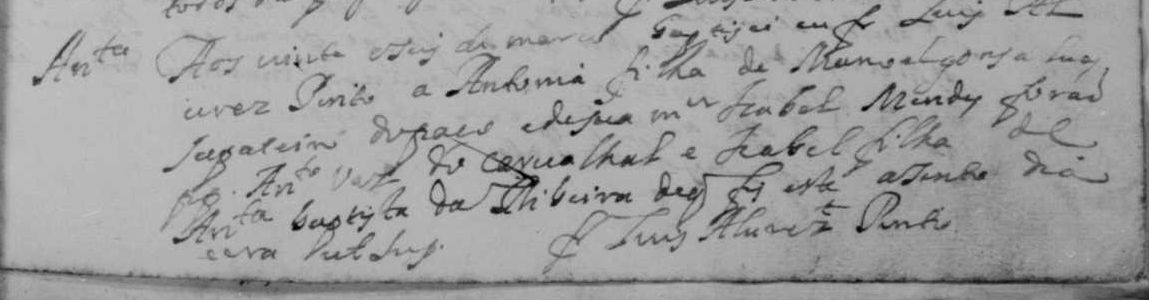 Ant.ta Aos vinte e seis de março baptizei eu fr Luis Al
verez Pinto a Antonia filha de Manoel gonsalues
sapateiro do paço e de sua mr Izabel Mendes forão
pp. Anto Vaz do Carualhal e Izabel filha de
Anta baptista da Ribeira de q fis este asento dia
era ut sup. fr Luis Aluerez Pinto